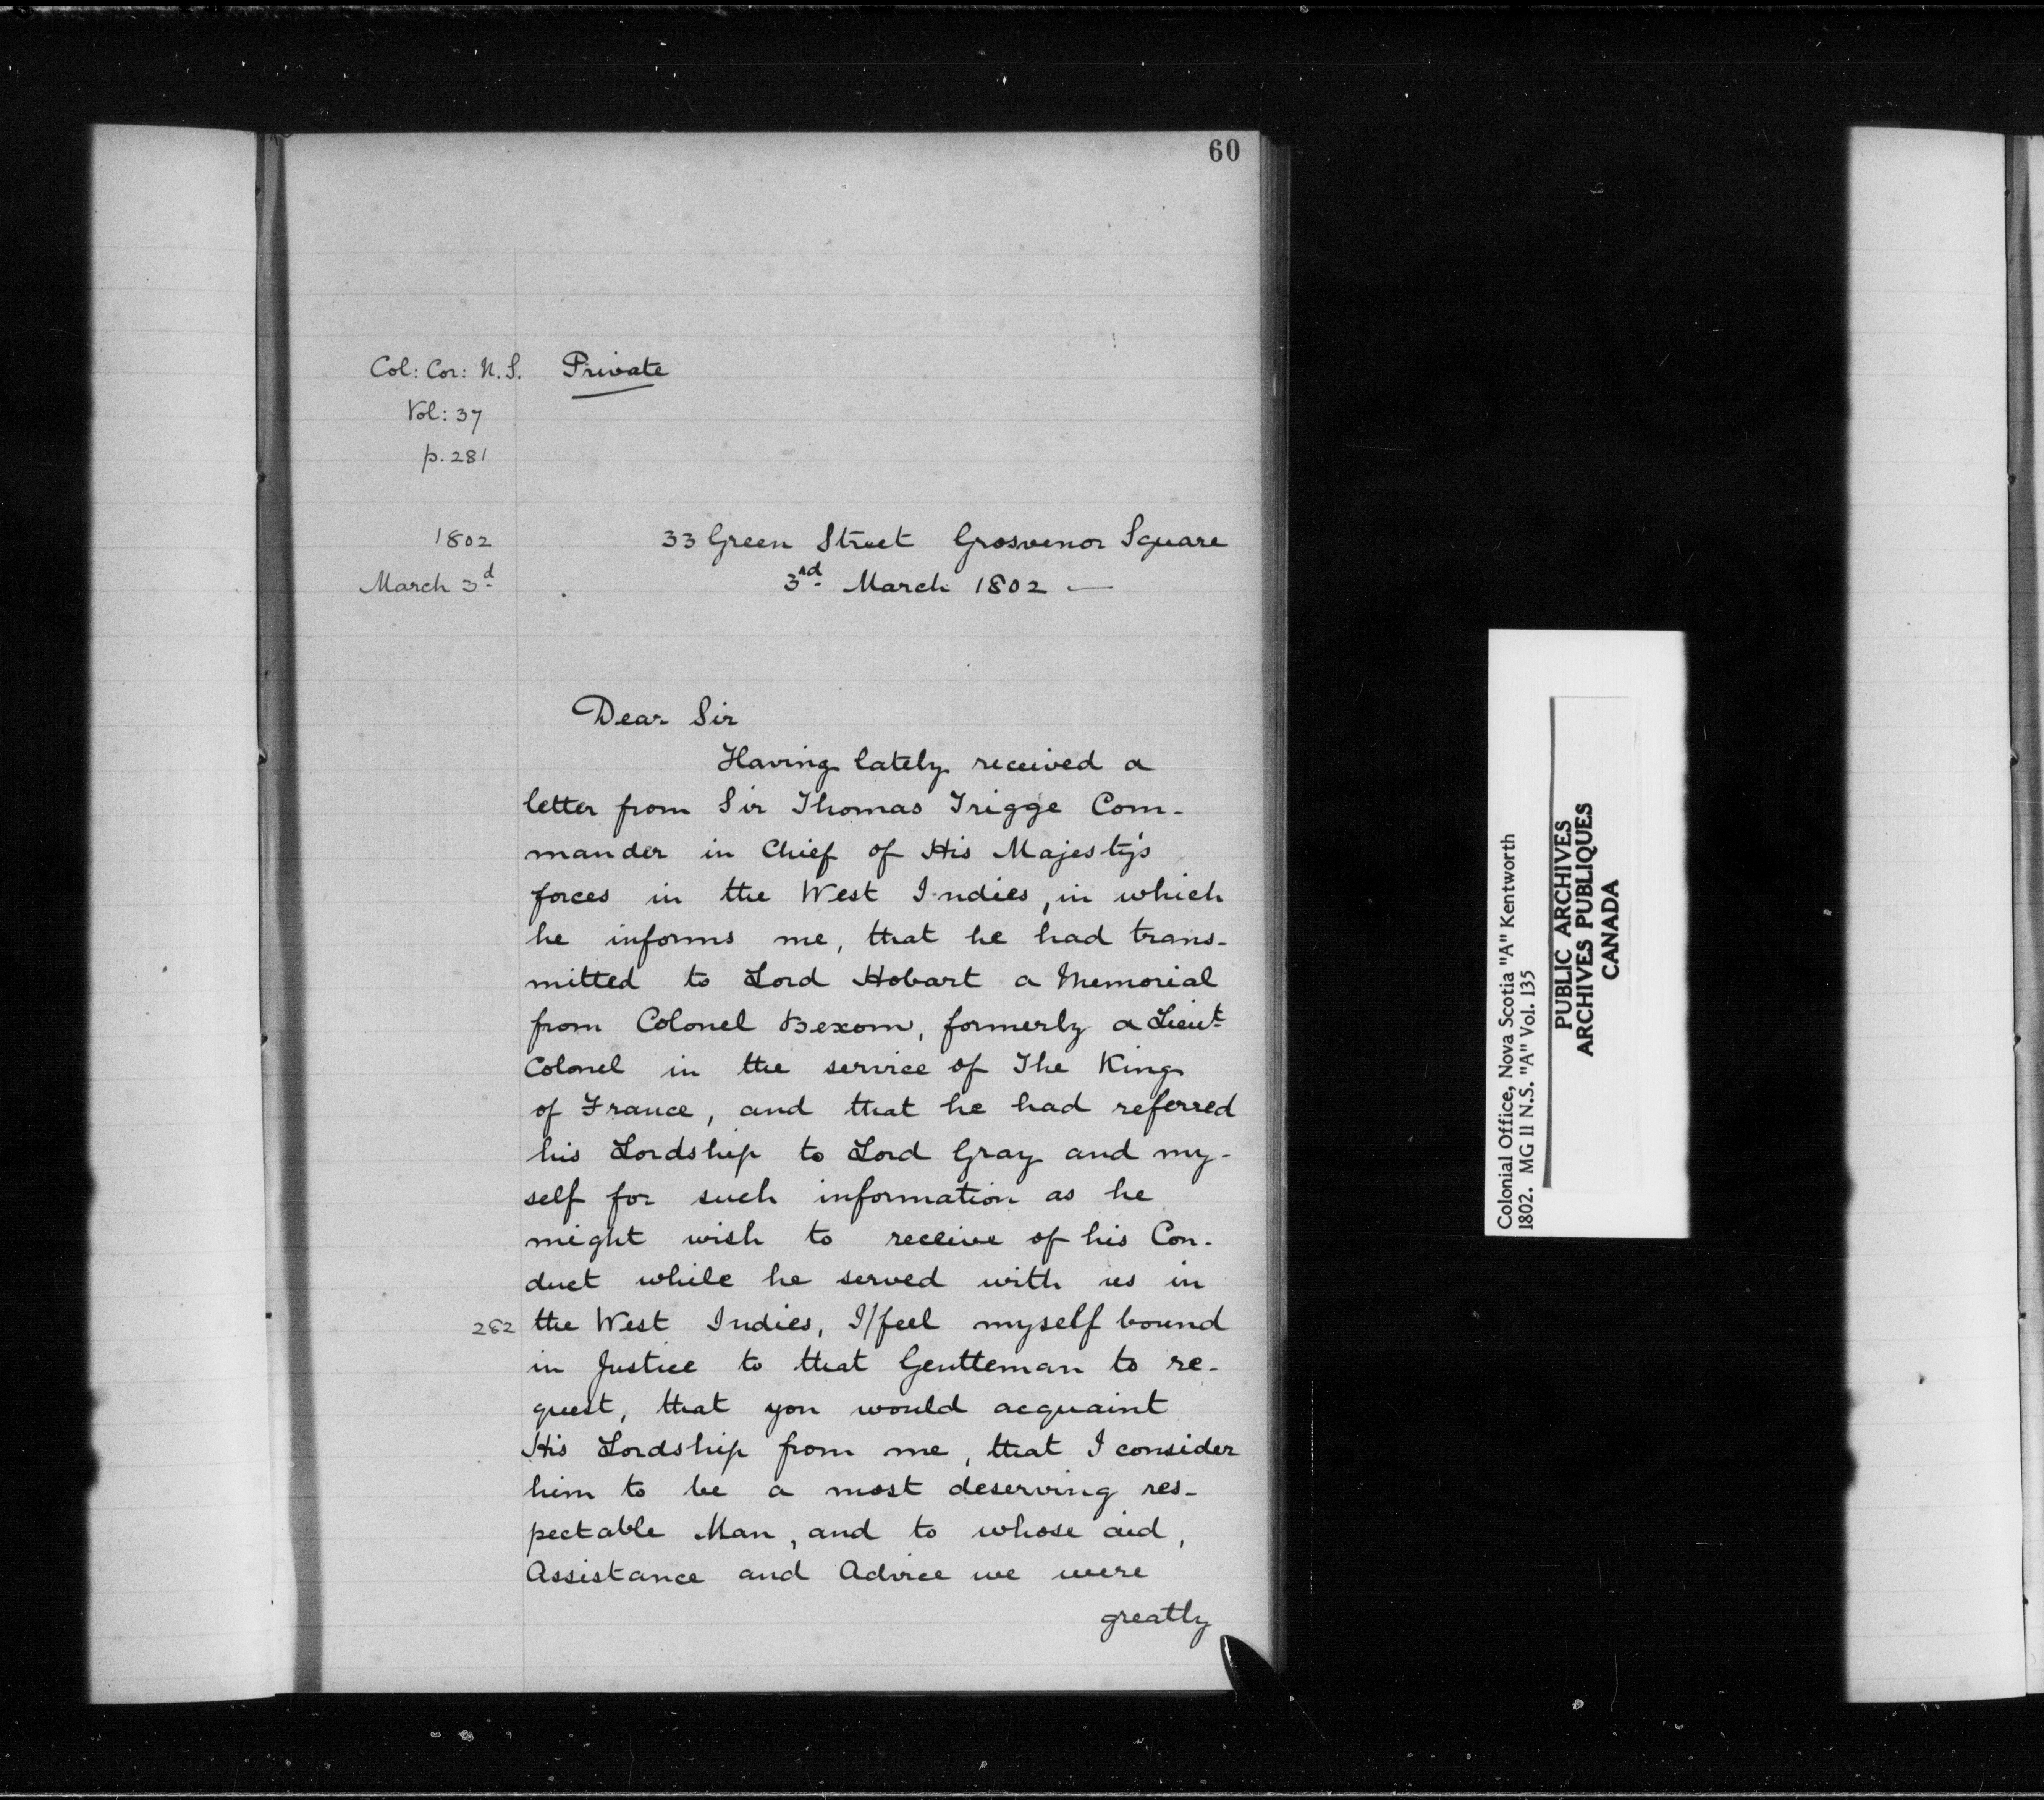 60
Col: Cor: N.S. Private
Vol: 37
p. 281
1802 33 Green Street Grosvenor Square
March 3d 3rd March 1802 —
Dear Sir
Having lately received a
letter from Sir Thomas Trigge Com-
mander in Chief of His Majesty's
forces in the West Indies, in which
he informs me, that he had trans-
mitted to Lord Hobart a Memorial
from Colonel Bexom, formerly a Lieut
Colonel in the service of The King
of France, and that he had referred
his Lordship to Lord Gray and my-
self for such information as he
might wish to receive of his Con-
duct while he served with us in
282 the West Indies, I/feel myself bound
in Justice to that Gentteman to re-
quest, that you would acquaint
His Lordship from me, that I consider
him to be a most deserving res-
pectable Man, and to whose aid,
Assistance and Advice we were
greatly
Colonial Office, Nova Scotia "A" Kentworth
1802. MG 11 N.S. "A" Vol. 135
PUBLIC ARCHIVES
ARCHIVES PUBLIQUES
CANADA